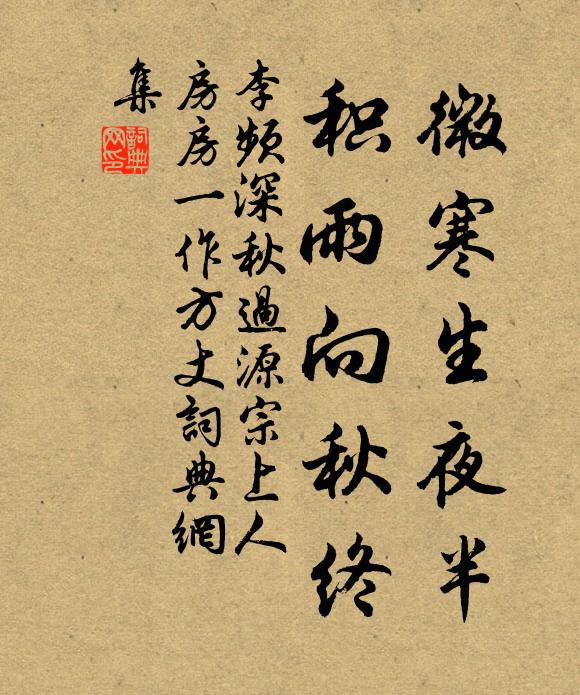 微寒生夜半
积雨向秋终
李频深秋過源宗上人
房房一作方丈詞典網
集
詞典网印